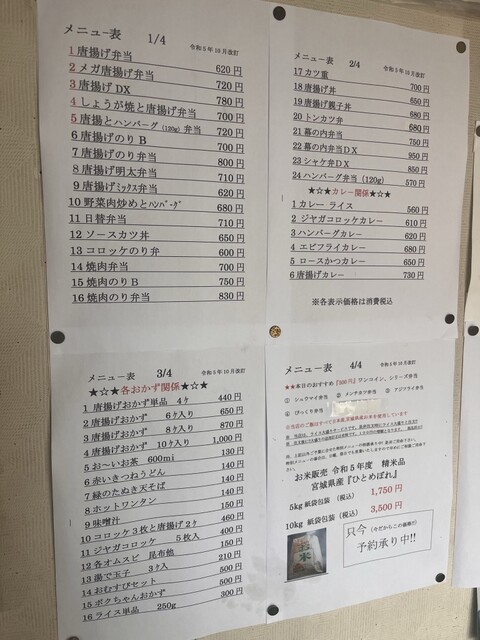 メニュー表 1/4 令和5年10月改訂
1 唐揚げ弁当 620円
2 メガ唐揚げ弁当 720円
3 唐揚げDX 780円
4 しょうが焼と唐揚げ弁当 700円
5 唐揚とハンバーグ(120g)弁当 720円
6 唐揚げのりB 700円
7 唐揚げのり弁当 800円
8 唐揚げ明太弁当 710円
9 唐揚げミックス弁当 620円
10 野菜肉炒めとハンバーグ 680円
11 日替弁当 710円
12 ソースカツ丼 650円
13 コロッケのり弁 600円
14 焼肉弁当 700円
15 焼肉のりB 750円
16 焼肉のり弁当 830円
メニュー表 2/4 令和5年10月改訂
17 カツ重 700円
18 唐揚げ丼 650円
19 唐揚げ親子丼 680円
20 トンカツ弁 680円
21 幕の内弁当 750円
22 幕の内弁当DX 950円
23 シャケ弁当DX 850円
24 ハンバーグ弁当(120g) 570円
★☆★カレー関係★☆★
1 カレーライス 560円
2 ジヤガコロッケカレー 610円
3 ハンバーグカレー 620円
4 エビフライカレー 680円
5 ロースかつカレー 650円
6 唐揚げカレー 730円
※各表示価格は消費税込
メニュー表 3/4 令和5年10月改訂
★☆★各おかず関係★☆★
1 唐揚げおかず単品 4ヶ 440円
2 唐揚げおかず 6ヶ入り 650円
3 唐揚げおかず 8ヶ入り 870円
4 唐揚げおかず 10ヶ入り 1,000円
5 お～いお茶 600ml 130円
6 赤いきつねうどん 140円
7 緑のたぬき天そば 140円
8 ホットワンタン 140円
9 味噌汁 140円
10 コロッケ3枚と唐揚げ2ヶ 460円
11 ジヤガコロッケ 5枚入 400円
12 各オムスビ 昆布他 210円
13 湯で玉子 3ヶ入 110円
14 おむすびセット 500円
15 ボクちゃんおかず 500円
16 ライス単品 250g 300円
メニュー表 4/4 令和5年10月改訂
★★本日のおすすめ『500円』ワンコイン、シリーズ弁当
① シュウマイ弁当 ② メンチカツ弁当 ③ アジフライ弁当
④ びっくり弁当
お米販売 令和5年度 精米品
宮城県産『ひとめぼれ』
5kg 紙袋包装 (税込) 1,750円
10kg 紙袋包装 (税込) 3,500円
只今(今だからこの価格!!)
予約承り中!!
お米